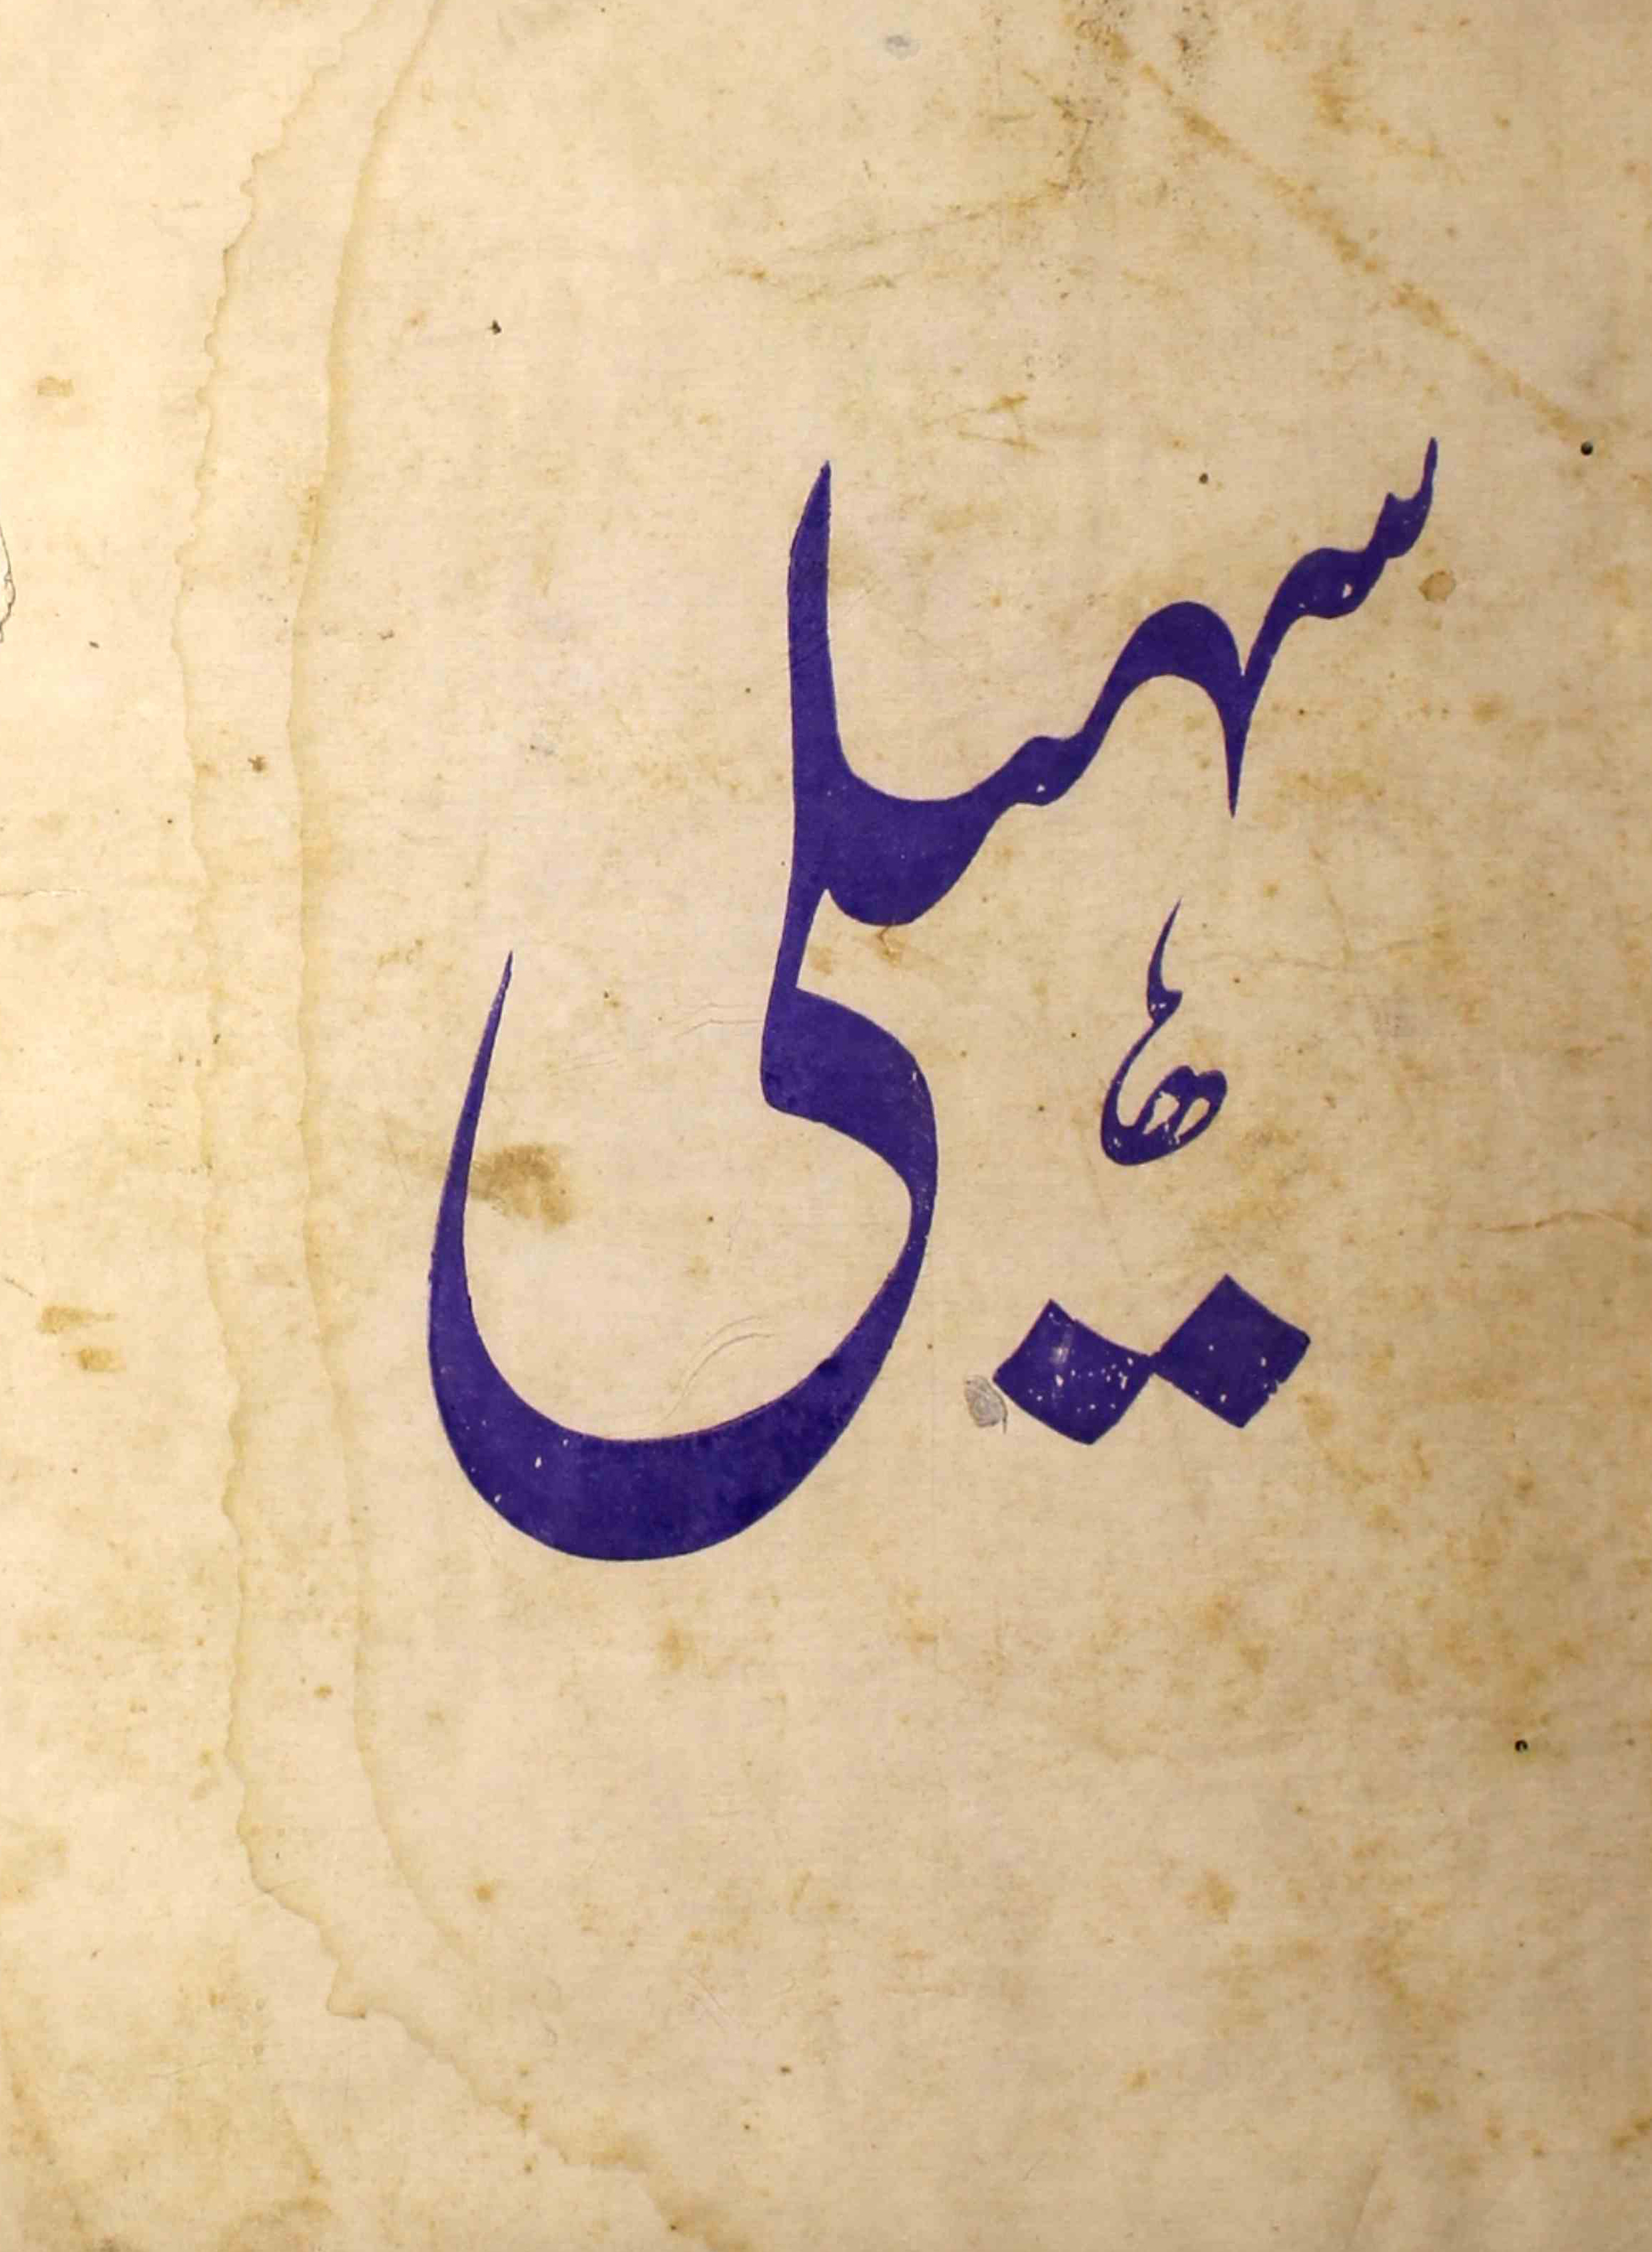 سہیلی